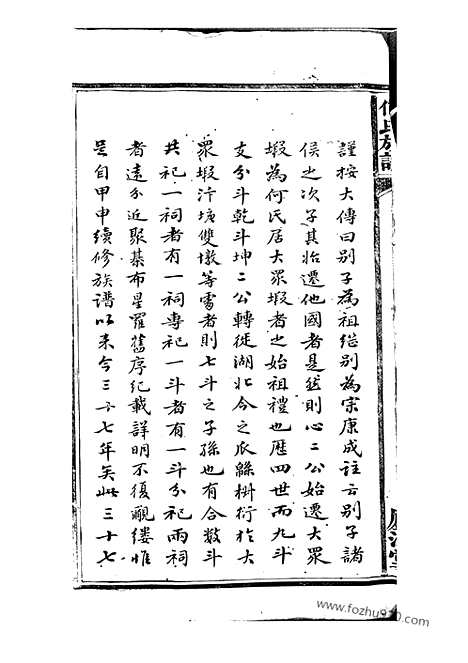 何氏族譜
謹按大傳曰別子為祖繼別為宗康成註云別子諸
侯之次子其始遷他國者是然則心二公始遷大眾
塅為何氏居大眾塅者之始祖禮也歷四世而九斗
支分斗乾斗坤二公轉徙湖北今之瓜緜椒衍於大
眾塅汴塅雙墩等處者則七斗之子孫也有合數斗
共祀一祠者有一祠專祀一斗者有一斗分祀兩祠
者遠分近聚棊布星羅舊序紀載詳明不復覼縷惟
是自甲申續修族譜以來今三十七年矣此三十七
www.fozhu920.com